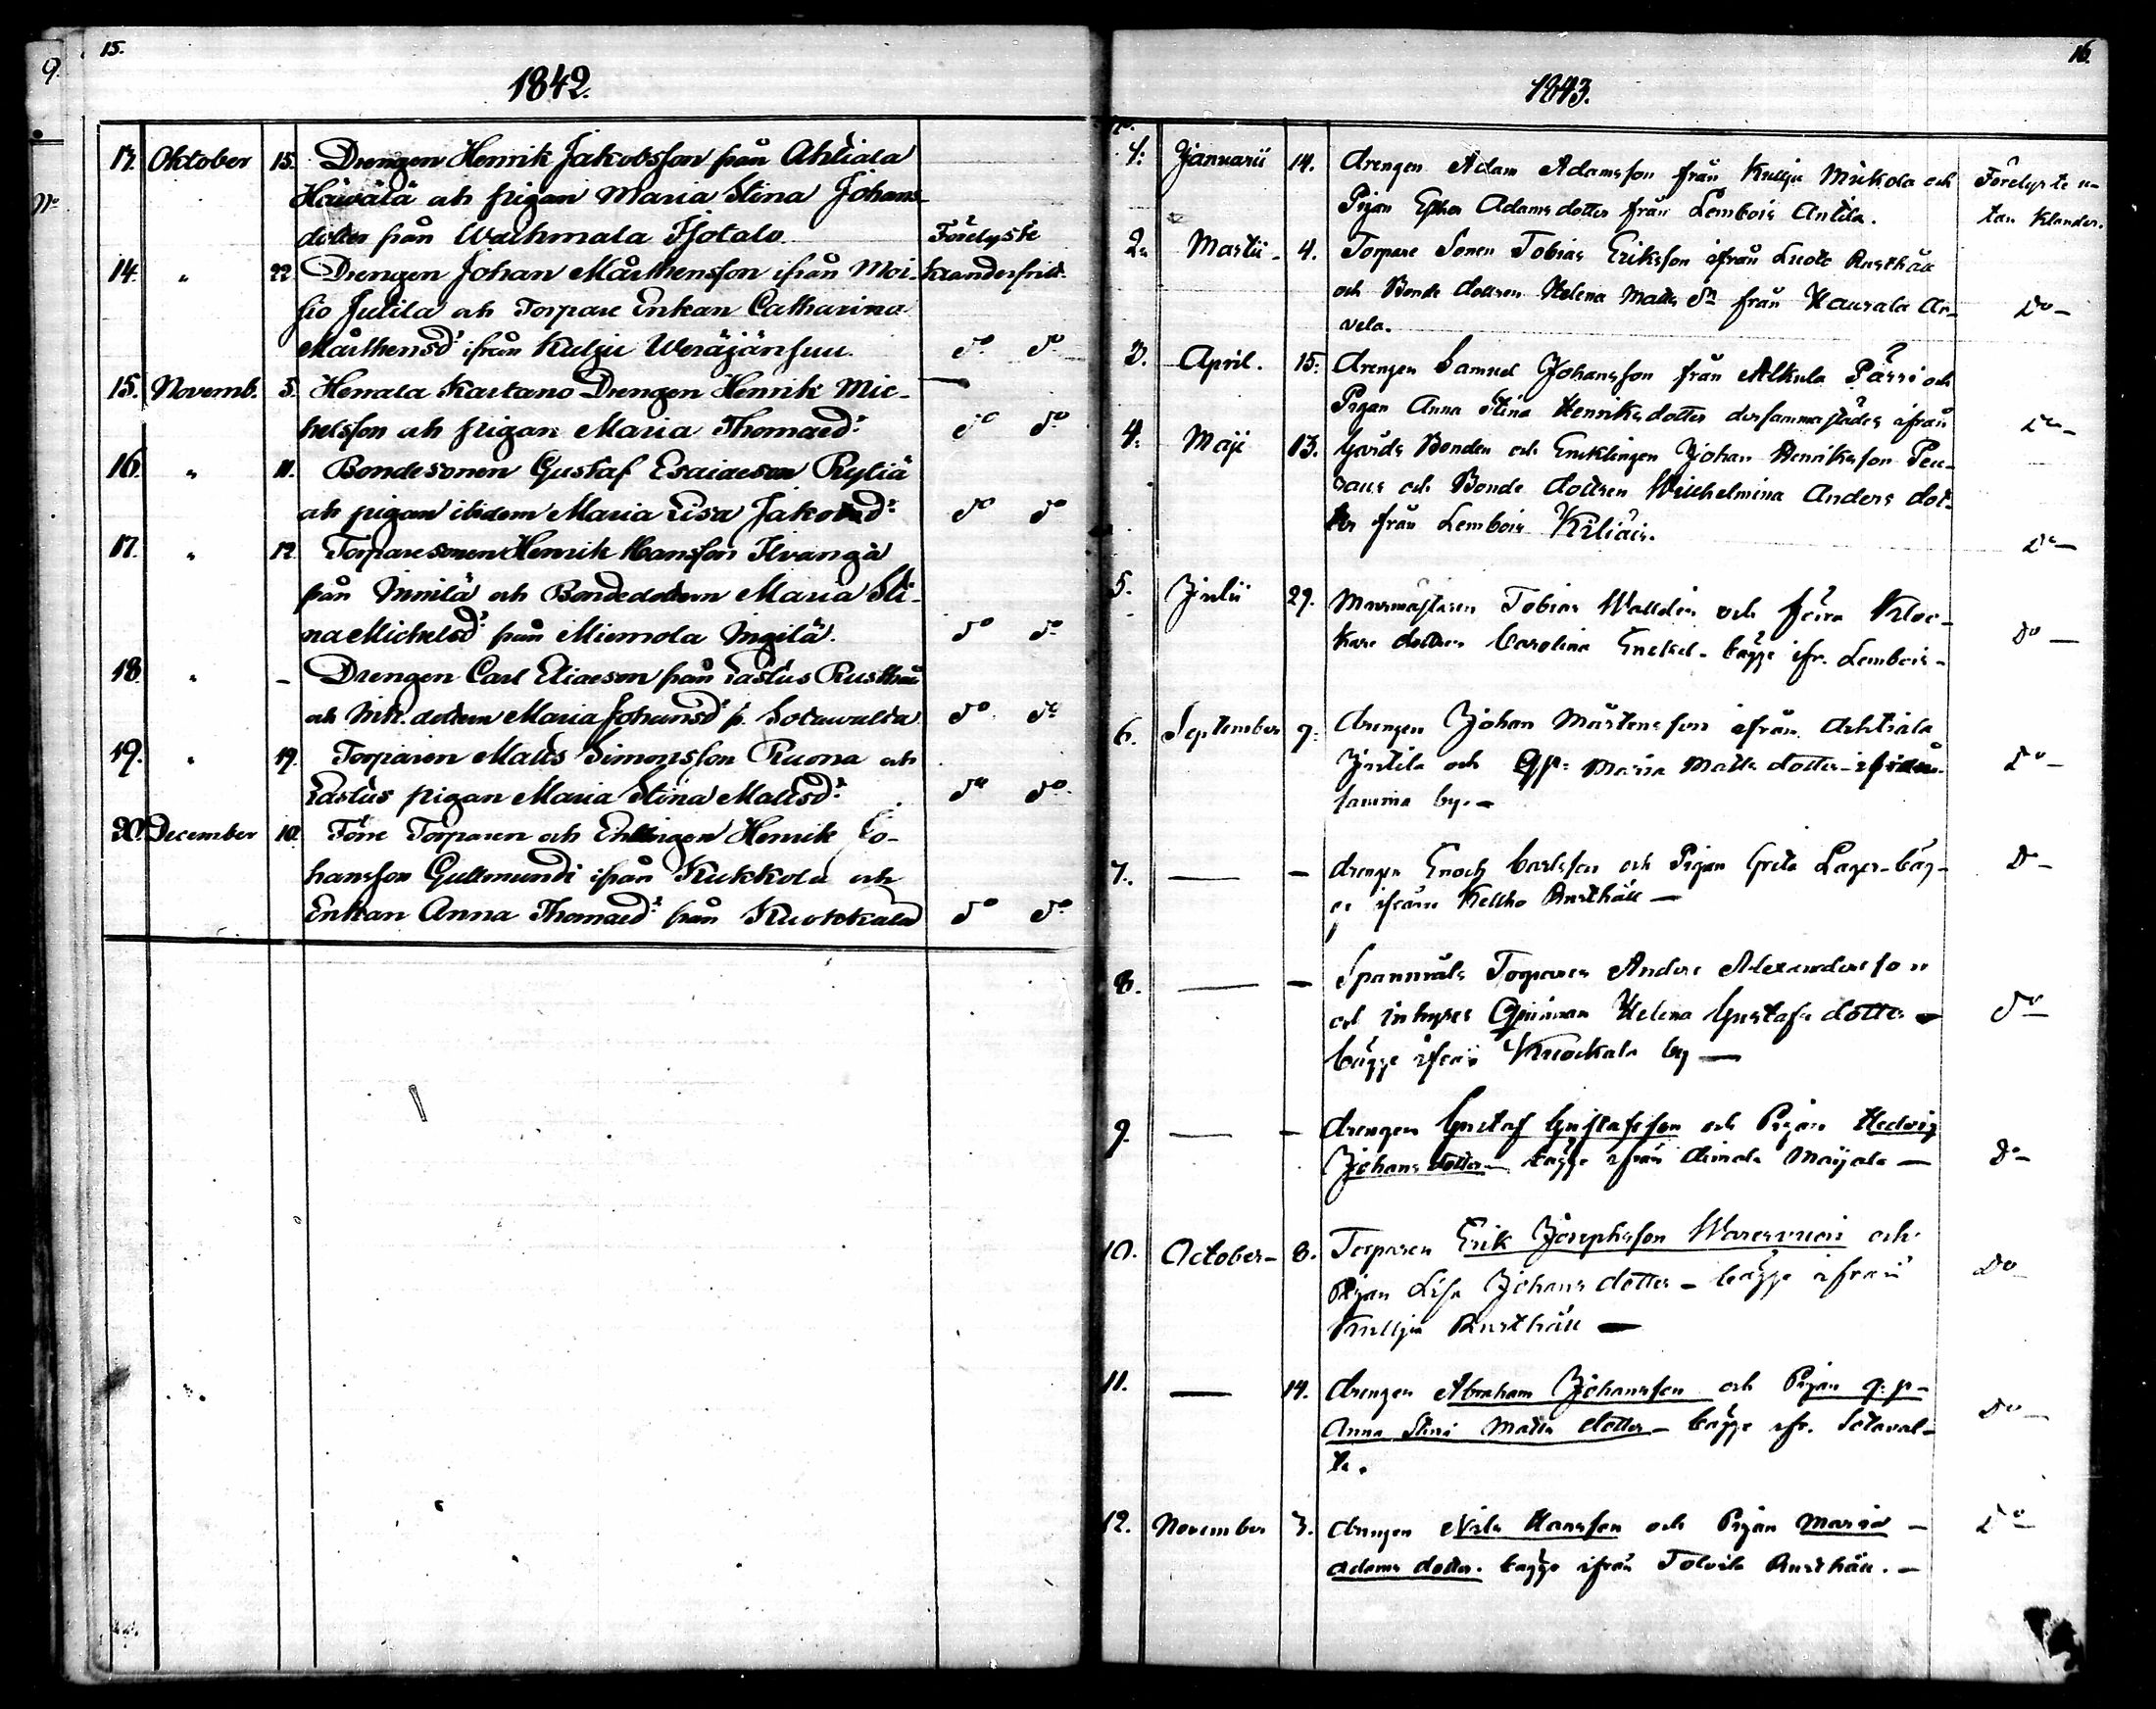 9.
15.
1842.
13. Oktober 15. Drengen Henrik Jakobsson från Ahtiala
Häivälä och pigan Maria Stina Johans-
dotter från Waihmala Isotalo Förelyste
14. " 22 Drengen Johan Mårthensson ifrån Moi- klanderfritt.
sio Jutila och Torpare Enkan Catharina
Mårthensdr ifrån Kulju do do
15. Novemb. 5. Herrala Kartano Drengen Henrik Mic-
helsson och pigan Maria Thomaedr do do
16. " 11. Bondesonen Gustaf Esaiaeson Ryliä
och pigan ibidem Maria Lisa Jakobsdr do do
17. " 12. Torparesonen Henrik Hansson
från Innilä och Bondedottern Maria Sti-
na Michelsdr från Miemola Ingilä. do do
18. " - Drengen Carl Eliaeson från Lastus Rusthåll
och Inh. dottern Maria Johansdr fr. Sotavalta do do
19. " 19. Torparen Matts Simonsson Ruona och
Lastus pigan Maria Stina Mattsdr do do
20. December 10. Förre Torparen och Enklingen Henrik Jo-
hansson Gullmundi ifrån Kukkola och
Enkan Anna Thomaedr från Kuokkala do do
16.
1843.
1. Januarii 14. drengen Adam Adamsson från Kullju Mikola och Förelyste u-
Pigan Adams dotter från Lembois Antila. tan klander.
2. Martii 4. Torpare Sonen Tobias Eriksson ifrån Rusthåll
och Bonde dottren Helena Matts dr från Haurala Ar- Do
vela.
3. April. 15. drengen Samuel Johansson från Alkula Pässi och
Pigan Anna Stina Henriksdotter dersammastädes ifrån Do
4. Maji 13. Gårds Bonden och Encklingen Johan Henriksson Peu-
raus och Bonde dottren Wilhelmina Anders dot-
ter från Lembois Kiliäis. Do
5. Julii 29. Tobias Walldén och Kloc-
kare dottren Carolina Enckel - bägge ifr. Lembois - Do
6. September 9. drengen Johan Mårtensson ifrån Ahtiala
Jutila och Qp: Maria Matts dotter - ifrån Do
samma by. -
7. — — drengen Enoch Carlsson och Pigan Greta Lager - bäg- Do
ge ifrån Kelho Rusthåll —
8. — — Spannmåls Torparen Anders Alexandersson
och inhyses Qvinnan Helena Gustafs dotter - Do
bägge ifrån Kuockala by —
9. — — drengen Gustaf Gustafsson och Pigan Hedvig
Johans dotter - bägge ifrån Aimala Maijala — Do
10. October - 8. Torparen Erik Josephsson och
Pigan Lisa Johans dotter - bägge ifrån Do
Kullju Rusthåll —
11. — 14. drengen Abraham Johansson och Pigan q:p-
Anna Stina Matts dotter - bägge ifr. Sotaval- Do
ta.
12. November 3. drengen Nils Hansson och Pigan Maria - Do
Adams dotter. bägge ifrån Tolvila Rusthåll. -